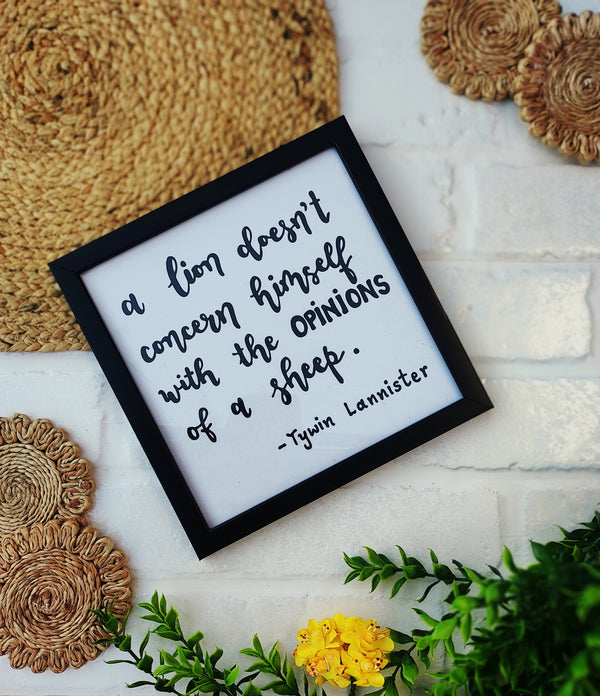 a lion doesn't
concern himself
with the OPINIONS
of a sheep.
-Tywin Lannister